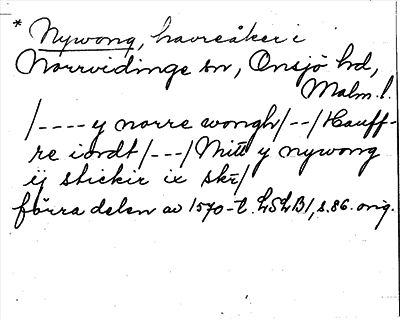 * Nywong, havreåker i
Norrvidinge sn, Onsjö hd,
Malm. l.
/---- y norre wongh/--/Hauff-
re iordt/---/Mitt y nywong
ij stickir ix skr/
förra delen av 1570-t. LSLB1, s. 86. orig.